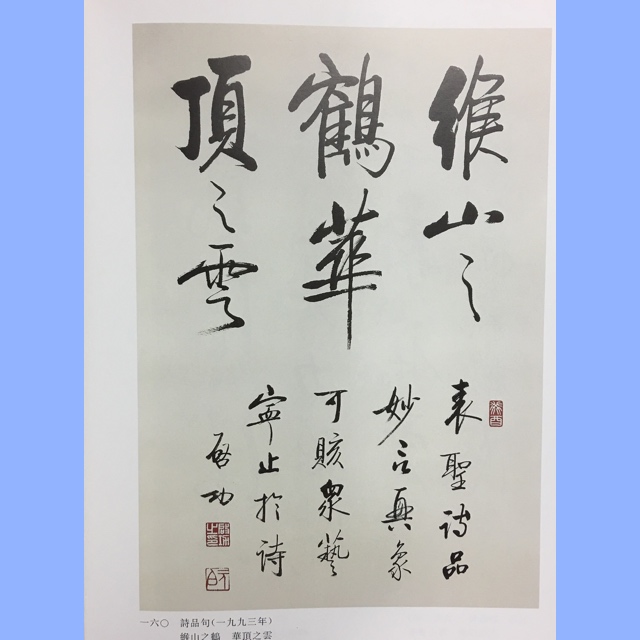 緱山之
鶴華
頂之雲
表聖詩品
妙言興象
可賅衆藝
寧止於詩
啓功
一六〇 詩品句(一九九三年)
緱山之鶴 華頂之雲